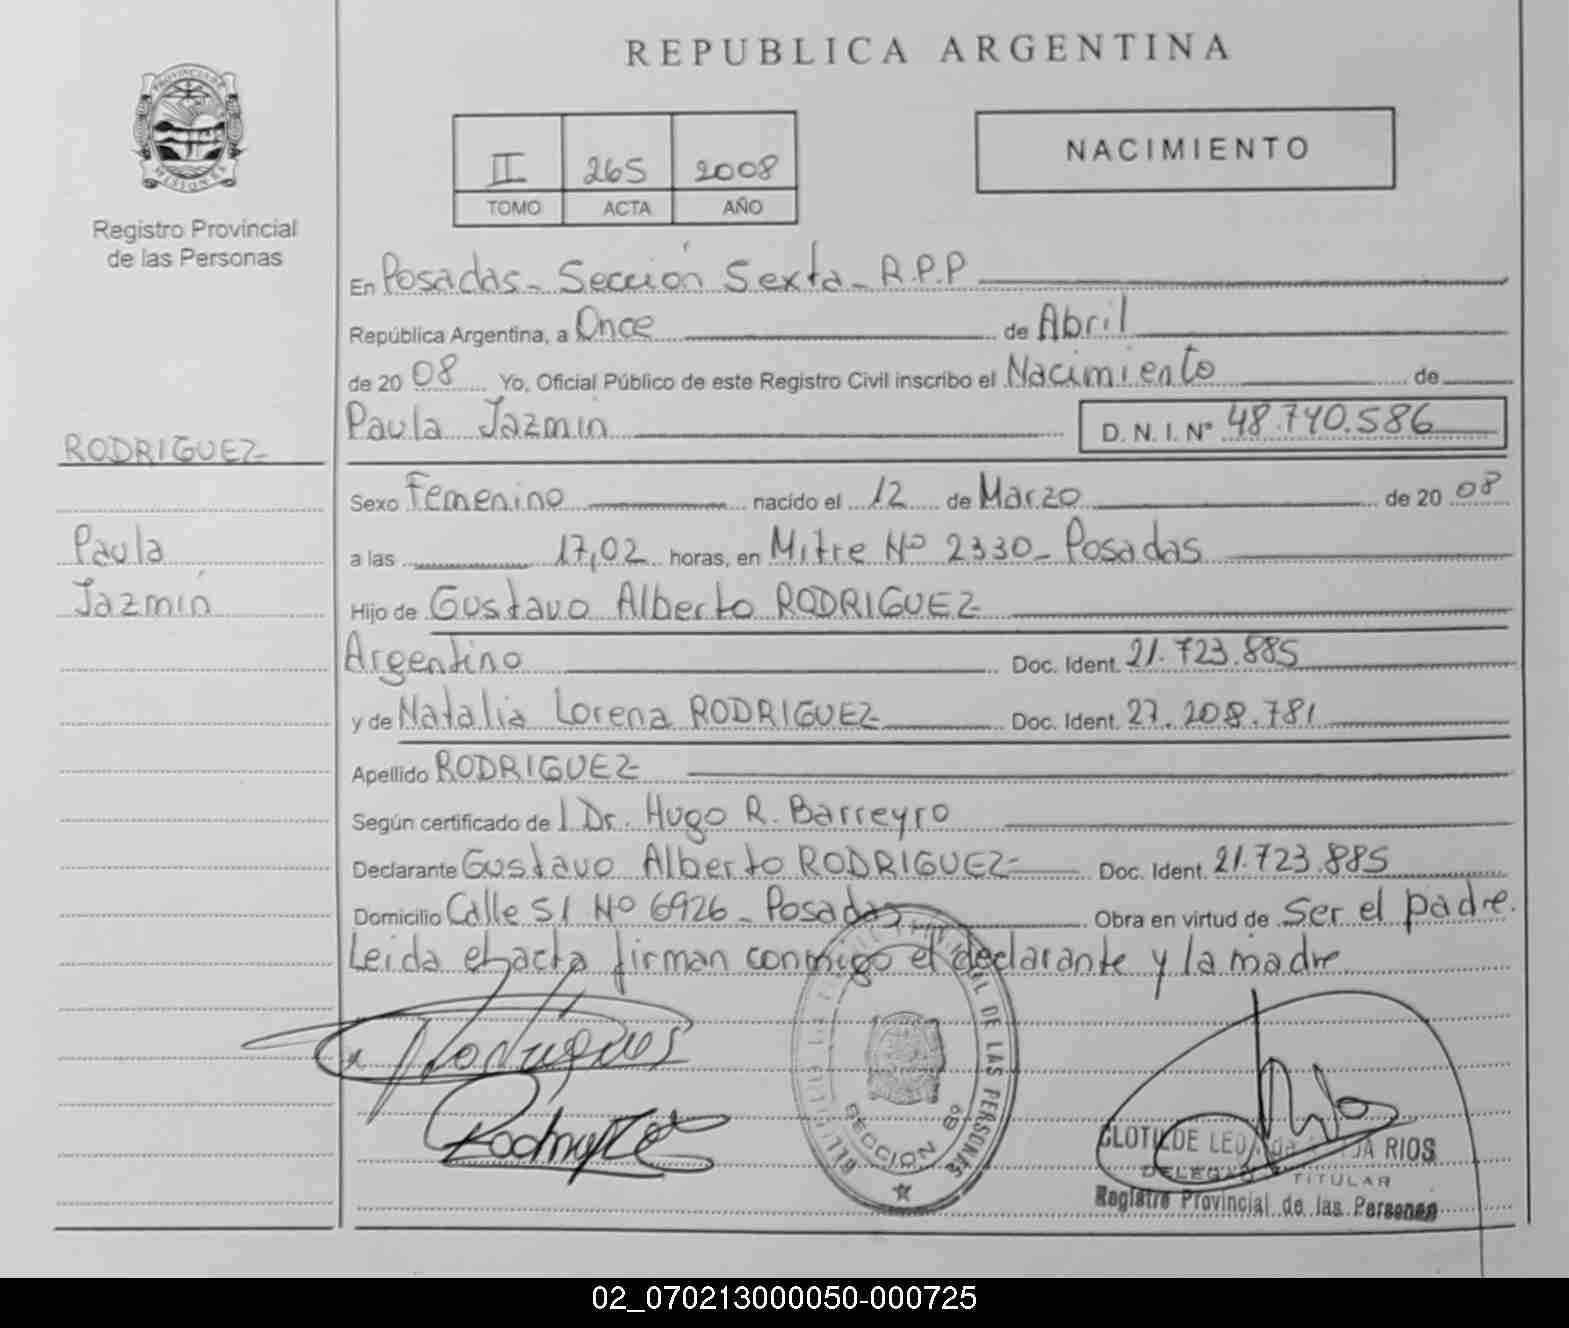 REPUBLICA ARGENTINA
PROVINCIA DE
MISIONES
II 265 2008
TOMO ACTA AÑO
NACIMIENTO
Registro Provincial
de las Personas
En Posadas - Sección Sexta - R.P.P
República Argentina, a Once de Abril
de 20 08 Yo, Oficial Público de este Registro Civil inscribo el Nacimiento de
Paula Jazmin D. N. I. Nº 48.740.586
RODRIGUEZ
Sexo Femenino nacido el 12 de Marzo de 20 08
Paula
a las 17,02 horas, en Mitre Nº 2330 - Posadas
Jazmín
Hijo de Gustavo Alberto RODRIGUEZ
Argentino Doc. Ident. 21.723.885
y de Natalia Lorena RODRIGUEZ Doc. Ident. 27.208.781
Apellido RODRIGUEZ
Según certificado de l Dr. Hugo R. Barreyro
Declarante Gustavo Alberto RODRIGUEZ Doc. Ident. 21.723.885
Domicilio Calle 51 Nº 6926 - Posadas Obra en virtud de Ser el padre.
Leida el acta firman conmigo el declarante y la madre
DE LAS PERSONAS
SECCION 6º
CLOTILDE RIOS
DELEGADO TITULAR
Registro Provincial de las Personas
02_070213000050-000725